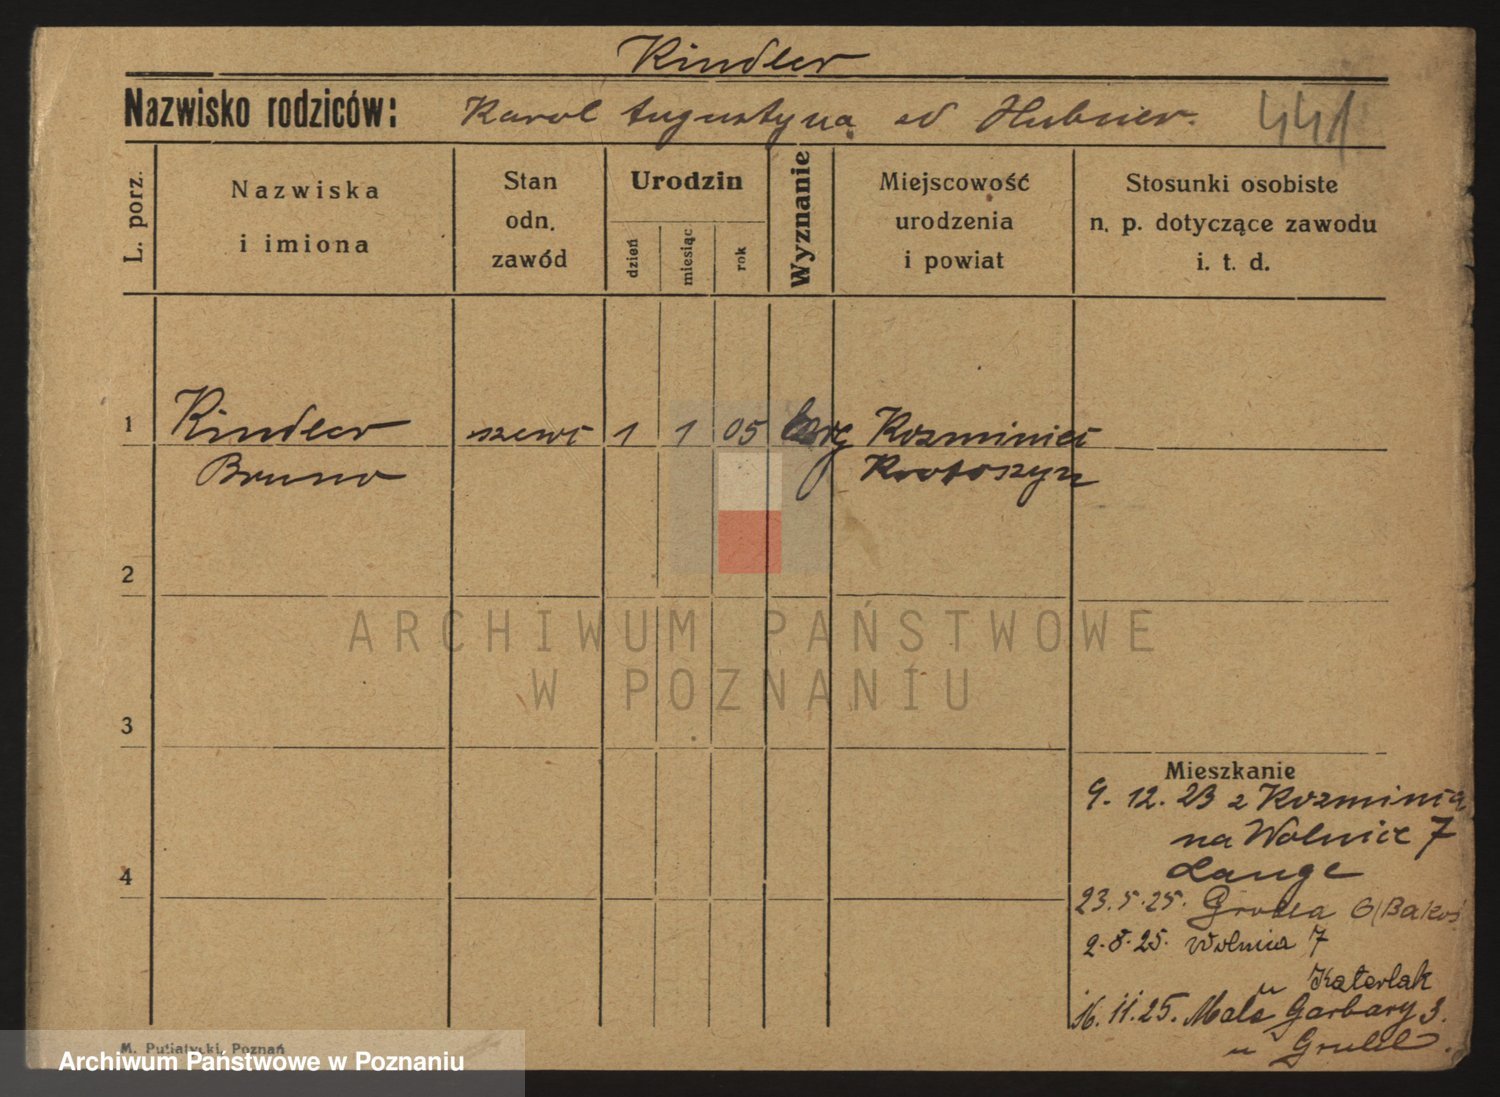 Kindler
Nazwisko rodziców: Karol Augustyna Hubner.
441
L. porz.
Nazwiska
i imiona
Stan
odn.
zawód
Urodzin
dzień
miesiąc
rok
Wyznanie
Miejscowość
urodzenia
i powiat
Stosunki osobiste
n. p. dotyczące zawodu
i. t. d.
1
Kindler
szewc
1
1
05
Kozminiec
Bruno
Krotoszyn
2
ARCHIWUM PAŃSTWOWE
W POZNANIU
3
Mieszkanie
9. 12. 23 z Kozmińca
na Wolnice 7
Lange
4
23.5.25. Grobla 6
2.8.25. Wolnica 7
u Katerlak
16.11.25. Male Garbary 3.
u
M. Putiatycki, Poznań
Archiwum Państwowe w Poznaniu